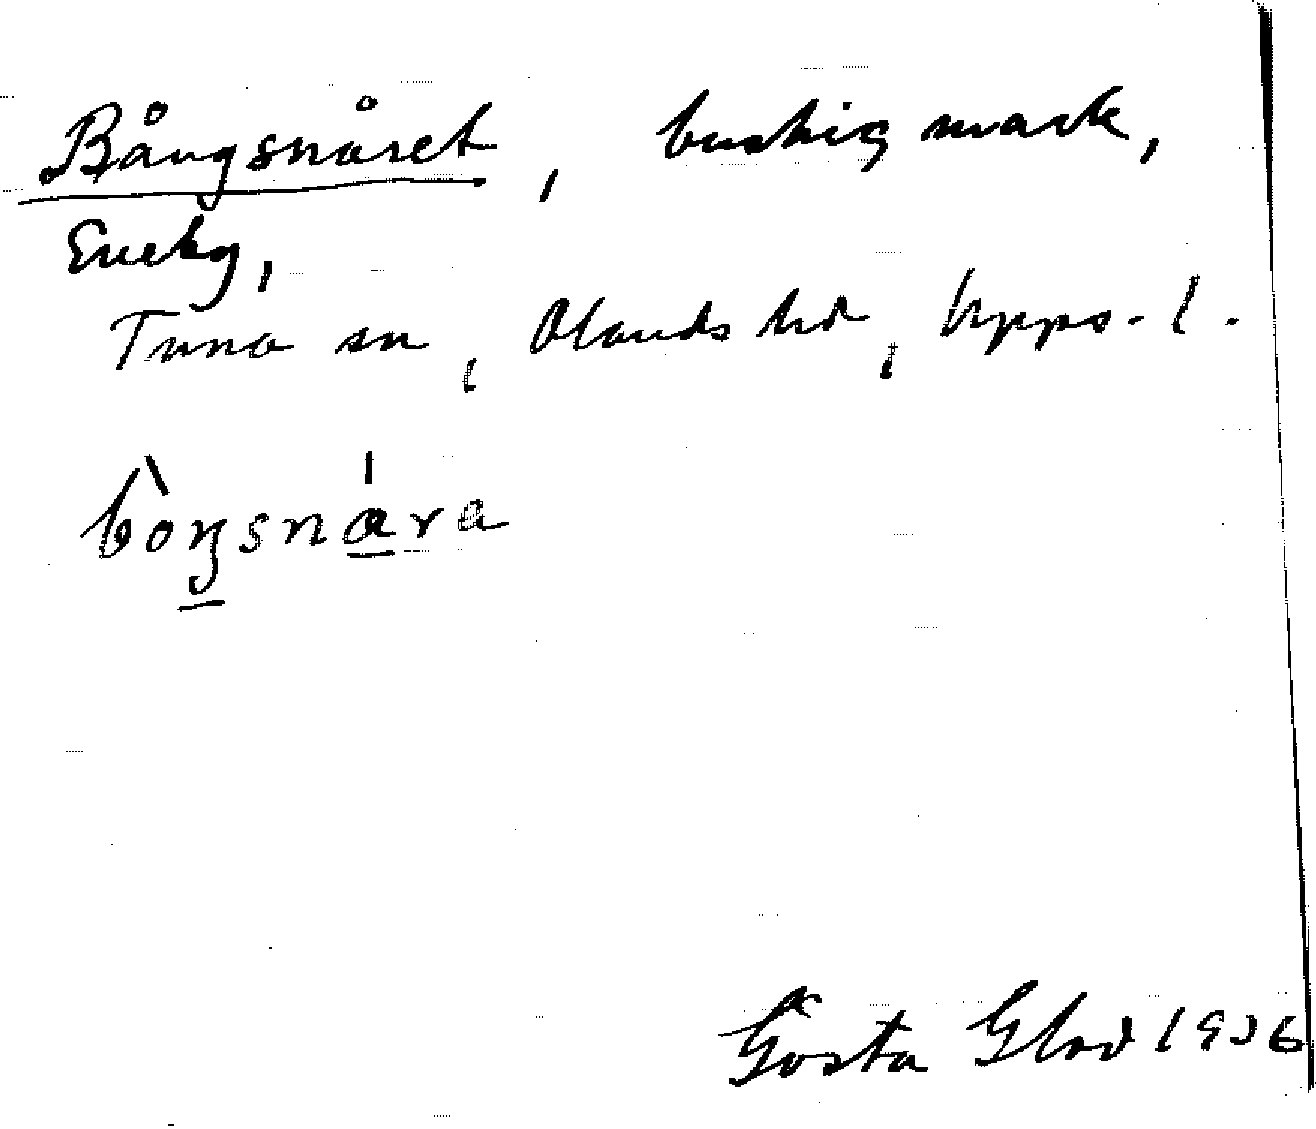 Bångsnåret, buskig mark,
Eneby,
Tuna sn, Olands hd, Upps. l.
bòŋsnåra
Gösta Glad 1936